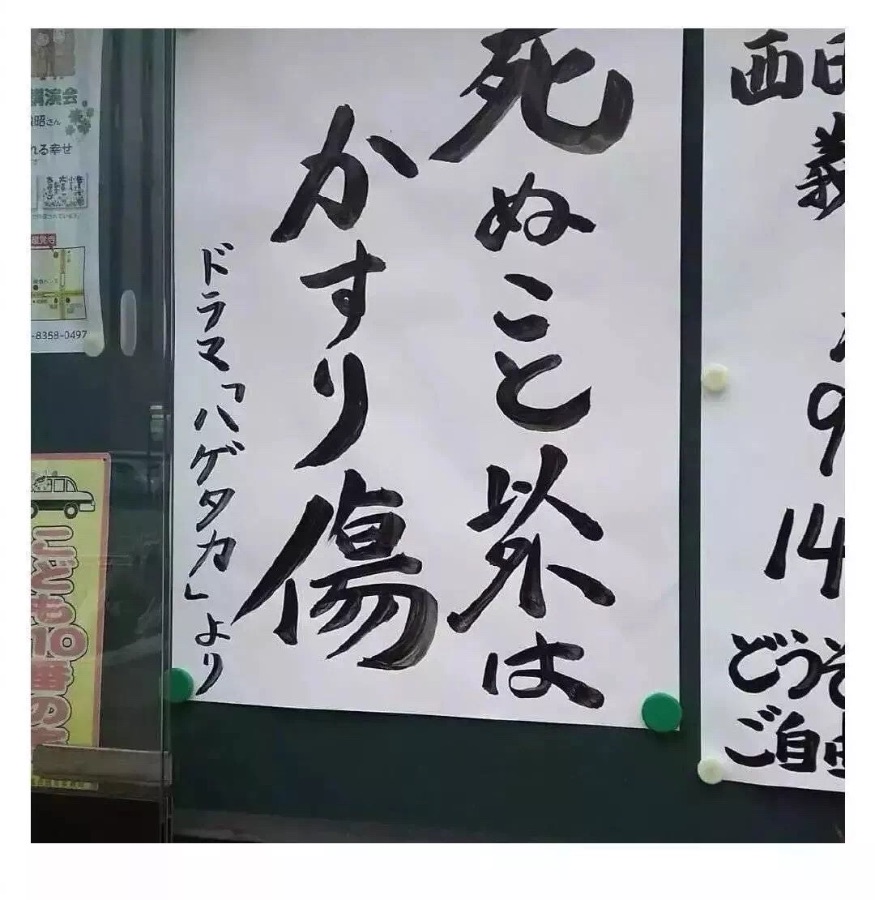 死ぬこと以外は
かすり傷
ドラマ「ハゲタカ」より
講演会
昭さん
れる幸せ
-8358-0497
こども110番の
西田
義
9
14
どうぞ
ご自由